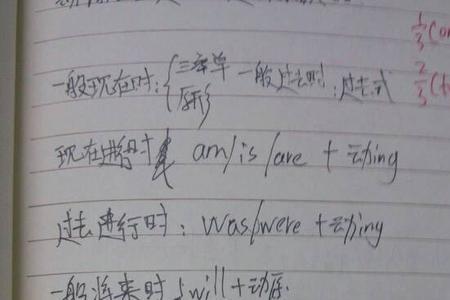 一般现在时：{三单 一般过去时：过去式
原形
现在进行时 am/is/are + 动ing
过去进行时：was/were +动ing
一般将来时 { will+动原